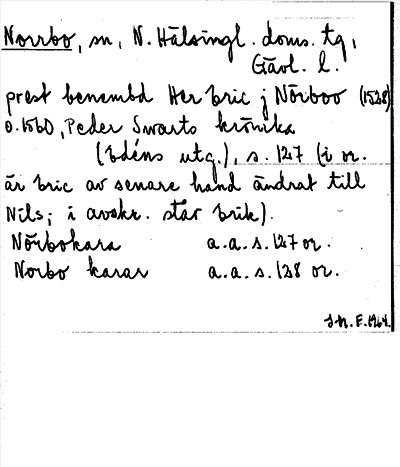 Norrbo, sn, N. Hälsingl. doms. tg,
Gävl. l.
prest benembd Her Eric j Nörboo (1528)
o. 1560, Peder Swarts krönika
(Edéns utg.), s. 127 (i or.
är Eric av senare hand ändrat till
Nils; i avskr. står Erik).
Nörbokara a.a.s. 127 or.
Norbo karar a.a.s. 128 or.